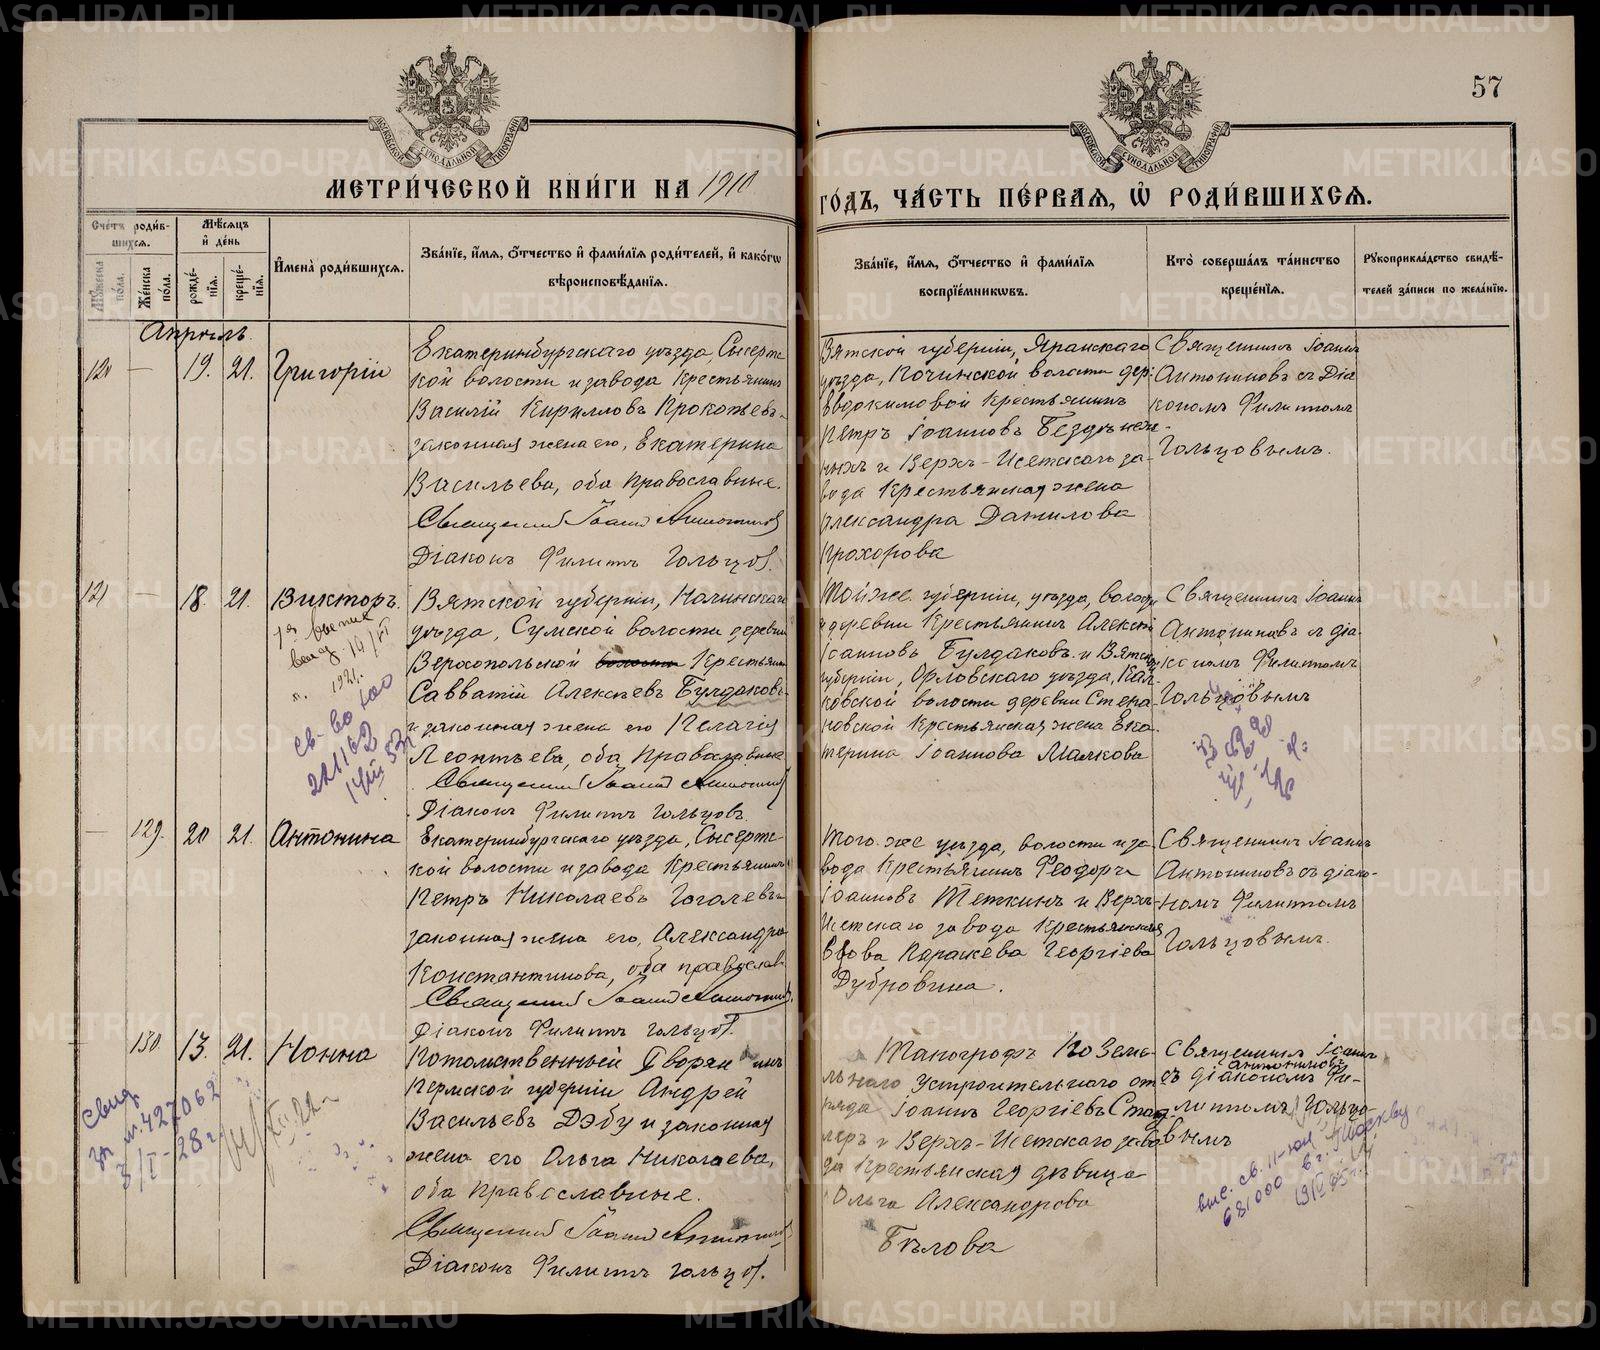 57
МЕТРИ́ЧЕСКОЙ КНИ́ГИ НА 1910
ГО́ДЪ, ЧА́СТЬ ПЕ́РВАѦ, Ѡ҆ РОДИ́ВШИХСѦ.
Сче́тъ роди́в-
шихсѧ.
Мꙋ́жеска по́ла.
Же́нска по́ла.
Мѣ́сѧцъ и҆ де́нь
рожде́-нїѧ.
креще́-нїѧ.
И҆мена̀ роди́вшихсѧ.
Зва́нїе, и҆́мѧ, ѻ҆́тчество и҆ фами́лїѧ роди́телей, и҆ како́гѡ
вѣроисповѣ́данїѧ.
Зва́нїе, и҆́мѧ, ѻ҆́тчество и҆ фами́лїѧ
воспрїе́мникѡвъ.
Кто̀ соверша́лъ та́инство
креще́нїѧ.
Рꙋкоприкла́дство свидѣ́-
телей за́писи по жела́нїю.
Апрѣль
120 — 19. 21. Григорій
Екатеринбургскаго уѣзда, Сысерт-
кой волости и завода Крестьянинъ
Василій Кирилловъ Прокопьевъ
законная жена его, Екатерина
Васильева, оба православные.
Священникъ Іоаннъ Антониновъ
Діаконъ Филиппъ Гольцовъ.
Вятской губерніи, Яранскаго
уѣзда, Починской волости дер.
Евдокимовой Крестьянинъ
Петръ Іоанновъ
ныхъ и Верхъ-Исетскаго за-
вода Крестьянская жена
Александра Данилова
Прохорова
Священникъ Іоаннъ
Антониновъ съ Діа
кономъ Филиппомъ
Гольцовымъ.
121 — 18. 21. Викторъ.
Вятской губерніи,
уѣзда, Сумской волости деревни
волости Крестьянинъ
Савватій Алексѣевъ Булдаковъ
и законная жена его Пелагія
Леонтьева, оба православные
Священникъ Іоаннъ Антониновъ
Діаконъ Филиппъ Гольцовъ.
Той же губерніи, уѣзда, волости
и деревни Крестьянинъ Алексѣй
Іоанновъ Булдаковъ и Вятской
губерніи, Орловскаго уѣзда,
ковской волости деревни
новской Крестьянская жена Ека-
терина Іоаннова Малкова
Священникъ Іоаннъ
Антониновъ съ діа-
кономъ Филиппомъ
Гольцовымъ
1921.
— 129. 20 21. Антонина
Екатеринбургскаго уѣзда, Сысерт-
кой волости и завода Крестьянинъ
Петръ Николаевъ Гоголевъ и
законная жена его, Александра
Константинова, оба православ.
Священникъ Іоаннъ Антониновъ.
Діаконъ Филиппъ Гольцовъ.
Того же уѣзда, волости и за
вода Крестьянинъ Феодоръ
Іоанновъ Теткинъ и Верхъ-
Исетскаго завода Крестьянская
вдова Параскева Георгіева
Дубровина.
Священникъ Іоаннъ
Антониновъ съ діако-
номъ Филиппомъ
Гольцовымъ.
130 13. 21. Нонна
Потомственный Дворянинъ
Пермской губерніи Андрей
Васильевъ Дэбу и законная
жена его Ольга Николаева,
оба православные.
Священникъ Іоаннъ Антониновъ
Діаконъ Филиппъ Гольцовъ.
Топографъ Поземе-
льнаго Устроительнаго от-
ряда Іоаннъ Георгіевъ
и Верхъ-Исетскаго заво
да Крестьянская дѣвица
Ольга Александрова
Бѣлова
Священникъ Іоаннъ
Антониновъ
съ діакономъ Фи-
липпомъ Гольцо
вымъ
свид.
427062
3/I-28 г.
681000 в г. Москву
METRIKI.GASO-URAL.RU